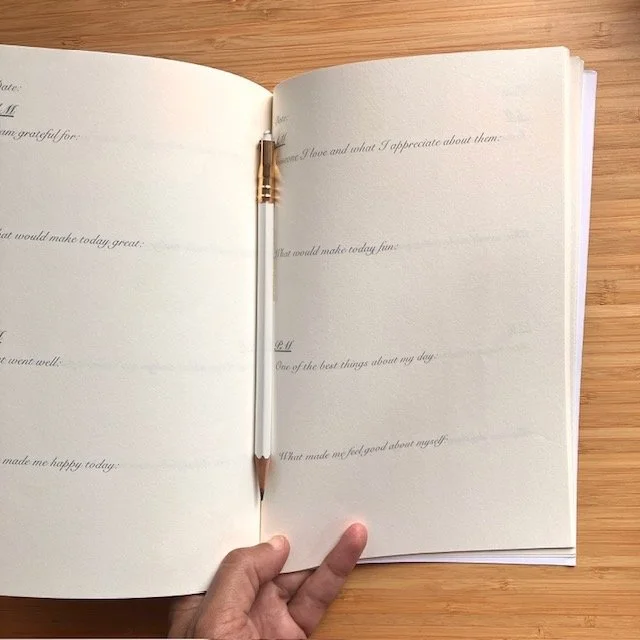 ate:
A.M.
am grateful for:
hat would make today great:
M
t went well:
made me happy today:
Date:
Someone I love and what I appreciate about them:
What would make today fun:
P.M
One of the best things about my day:
What made me feel good about myself: